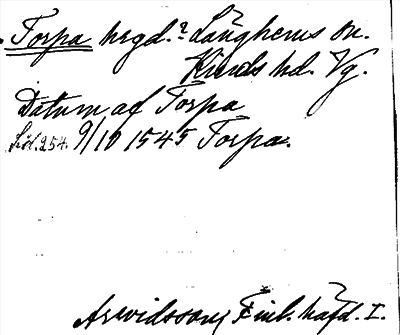 Torpa hrgd. ? Länghems sn.
Kinds hd. Vg.
Datum af Torpa
Sid. 254. 9/10 1545 Torpa.
Arwidsson, Finl. häfd. I.